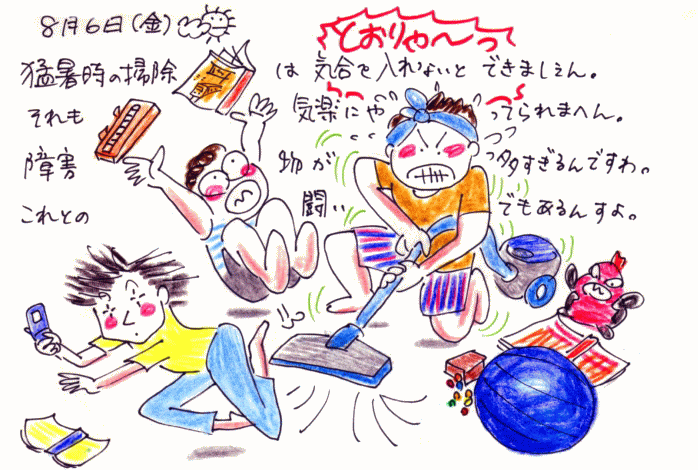 8月6日(金)
とおりゃ〜っ
猛暑時の掃除は気合で入れないとできましえん。
それも気楽にやってられまへん。
障害物がっ多すぎるんですわ。
これとの闘いでもあるんすよ。